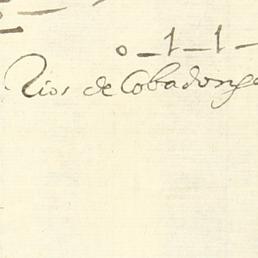 0-1-1-
Rios de Cobadonga